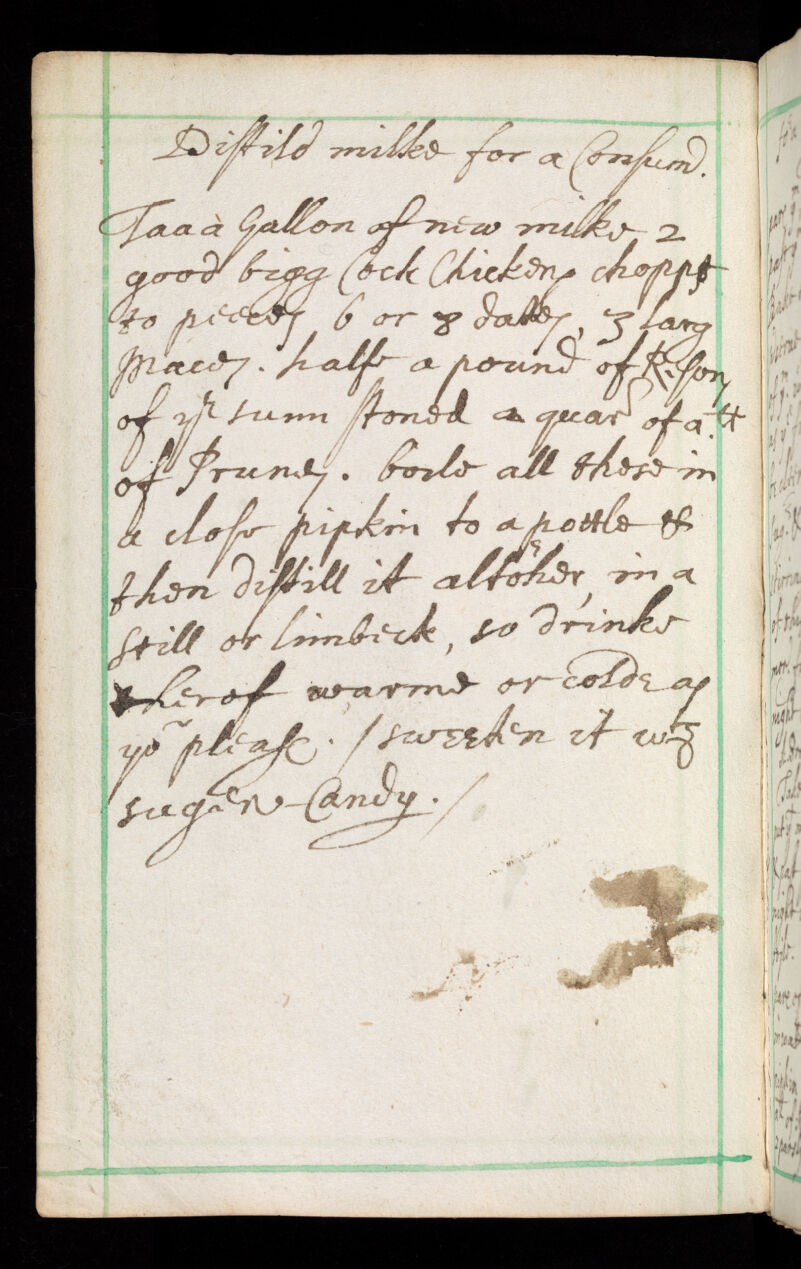 Distild milke for a Consum͠.
Taa a Gallon of new milke 2
good bigg Cock Chickens chopps
to peeces 6 or 8 dates, 3 larg
Maces. halfe a pound of Resons
of yᵉ sunn stoned a quarʳ of a ˡᵗ
of Prunes. boile all these in
a close pipkin to a pottle &
then distill it altoᵉher, in a
still or limbeck, so drinke
therof warme or colde as
yoᵘ please. / sweeten it wᵗʰ
suger-Candy. /